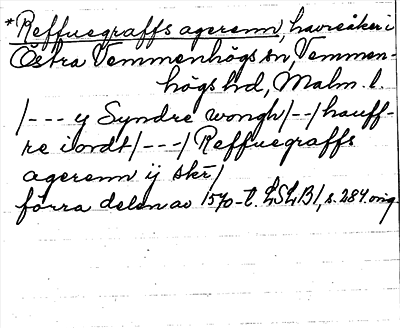 *Reffuegraffs agerenn, havreåker i
Östra Vemmenhögs sn, Vemmen-
högs hd, Malm. l.
/--- y Syndre wongh/--/hauff-
re iordt/---/Reffuegraffs
agerenn ij skr/
förra delen av 1570-t. LSLB1, s. 284. orig.